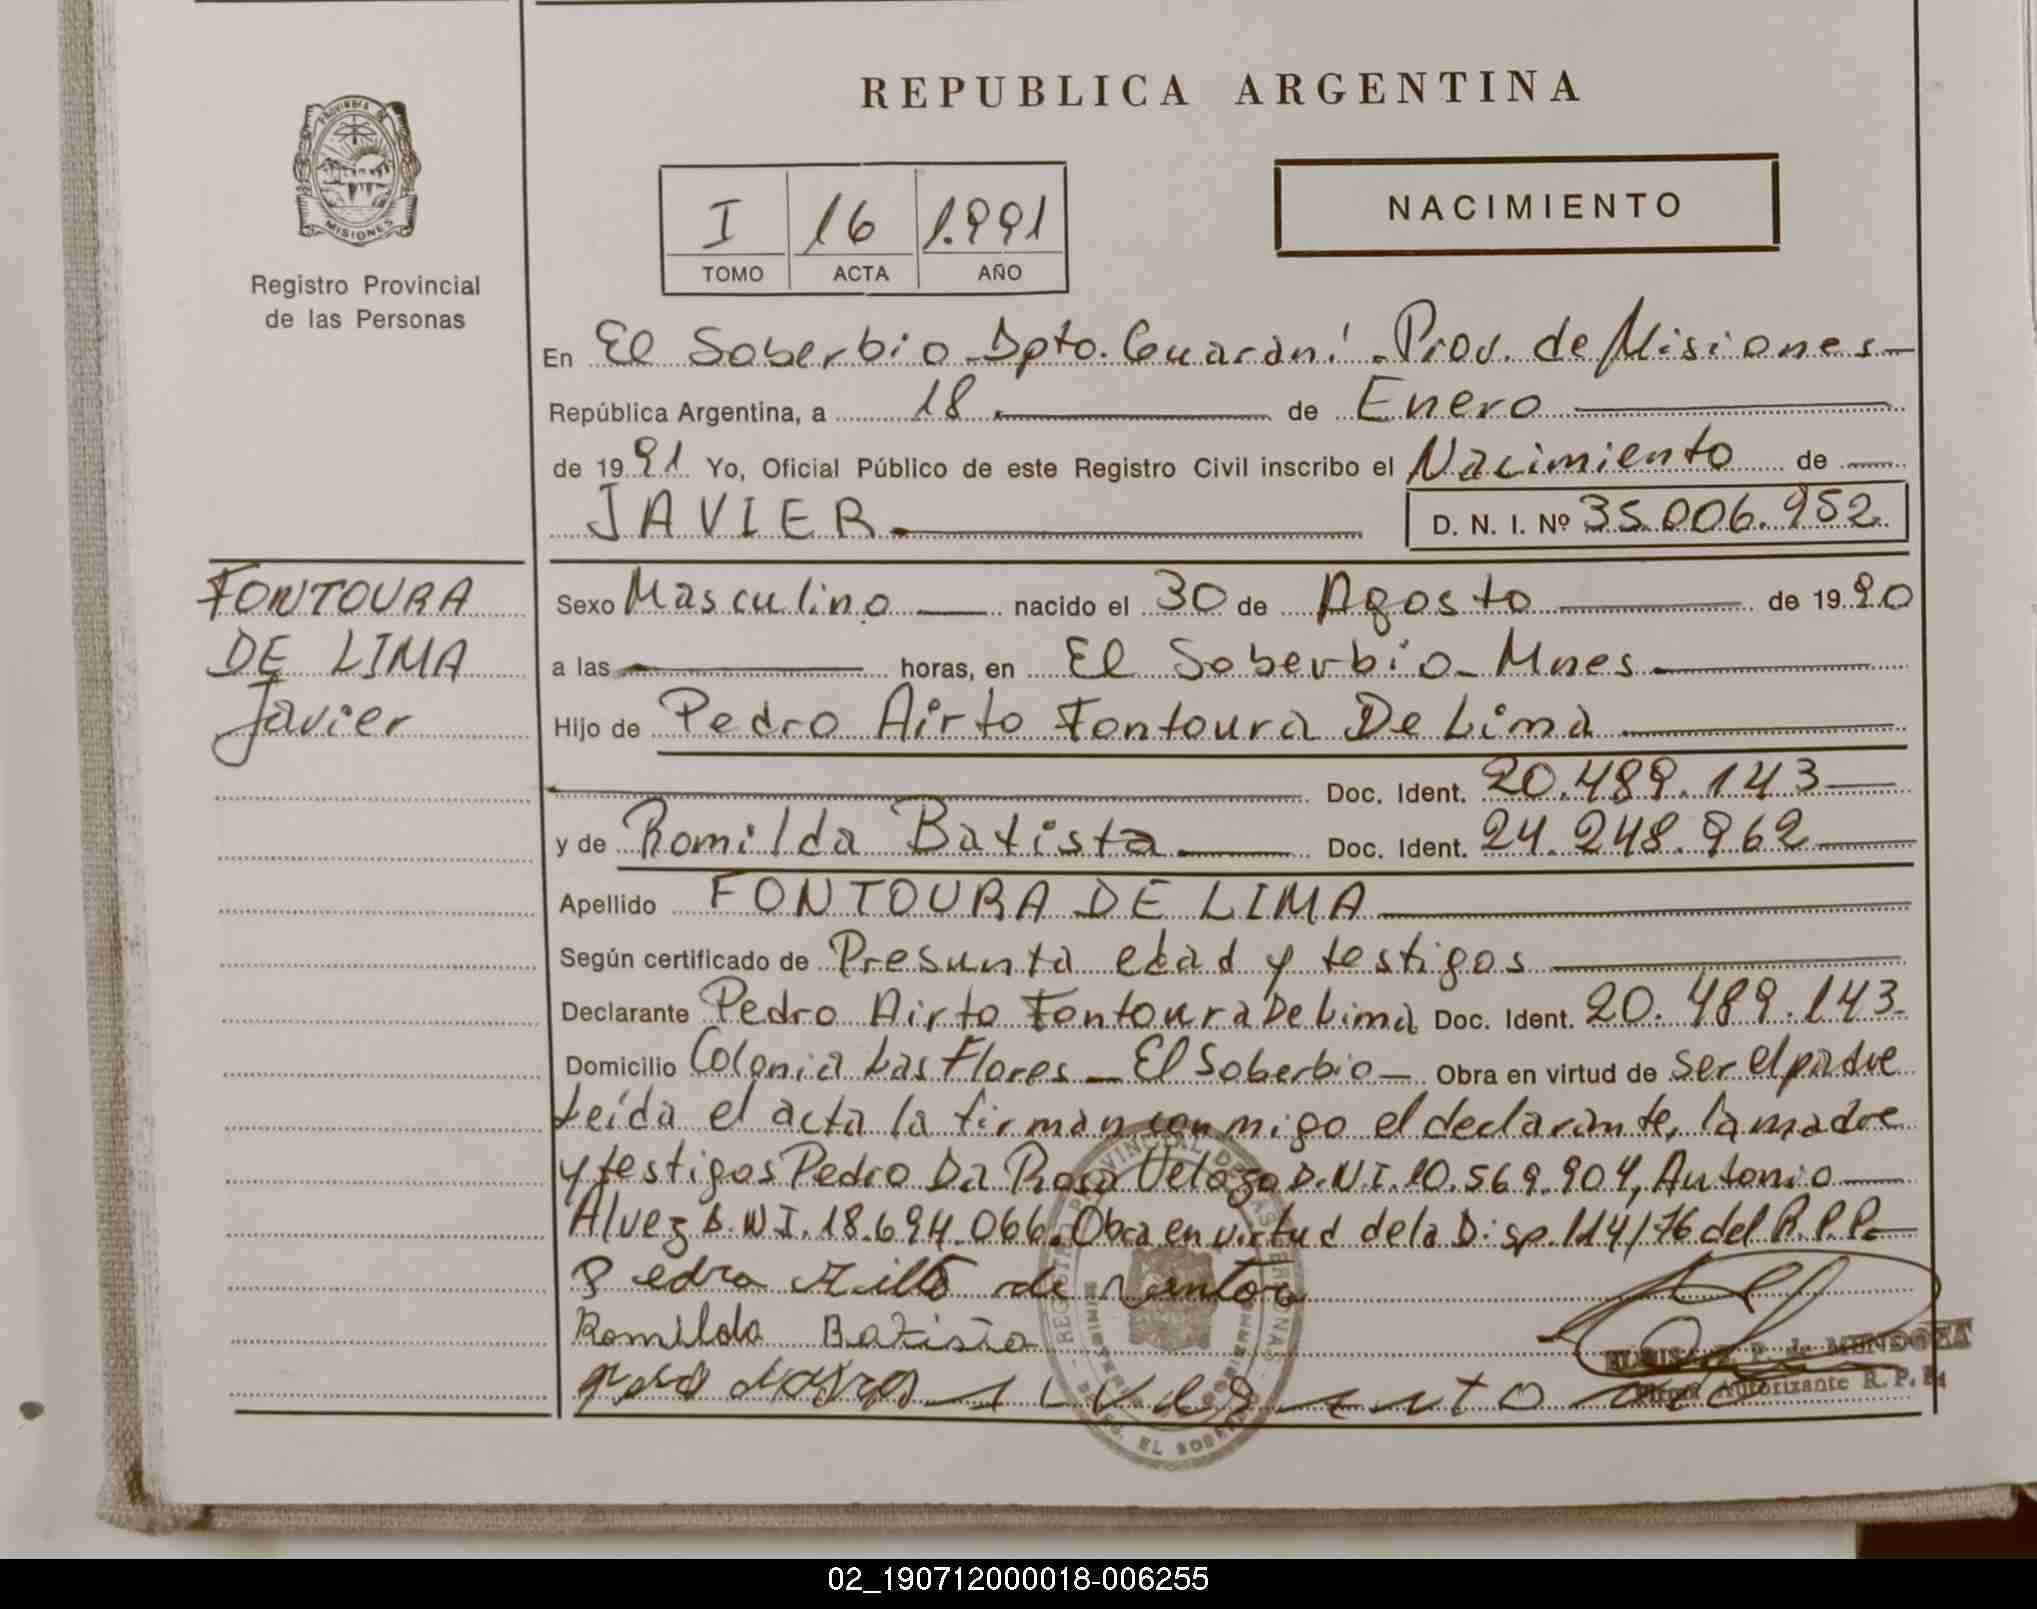 REPUBLICA ARGENTINA
PROVINCIA DE MISIONES
Registro Provincial
de las Personas
I 16 1.991
TOMO ACTA AÑO
NACIMIENTO
En El Soberbio - Dpto. Guaraní - Prov. de Misiones
República Argentina, a 18 de Enero
de 1991 Yo, Oficial Público de este Registro Civil inscribo el Nacimiento de
JAVIER D. N. I. Nº 35.006.952
FONTOURA
DE LIMA
Javier
Sexo Masculino nacido el 30 de Agosto de 1990
a las horas, en El Soberbio - Mnes
Hijo de Pedro Airto Fontoura De Lima
Doc. Ident. 20.489.143
y de Romilda Batista Doc. Ident. 24.248.962
Apellido FONTOURA DE LIMA
Según certificado de Presunta edad y testigos
Declarante Pedro Airto Fontoura De Lima Doc. Ident. 20.489.143
Domicilio Colonia Las Flores - El Soberbio - Obra en virtud de ser el padre
Leída el acta la firman conmigo el declarante, la madre
y testigos Pedro Da Rosa Velozo D.N.I. 10.569.904, Antonio
Alvez D.N.I. 18.694.066. Obra en virtud de la Disp. 114/76 del R.P.P.
Romilda Batista
P. de MENDOZA
Autorizante R. P. P.
02_190712000018-006255